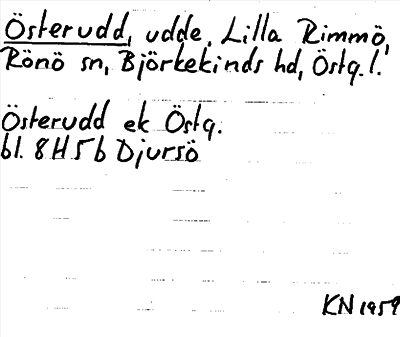 Österudd, udde, Lilla Rimmö,
Rönö sn, Björkekinds hd, Östg. l.
Österudd ek Östg.
bl. 8H5b Djursö
KN 1959